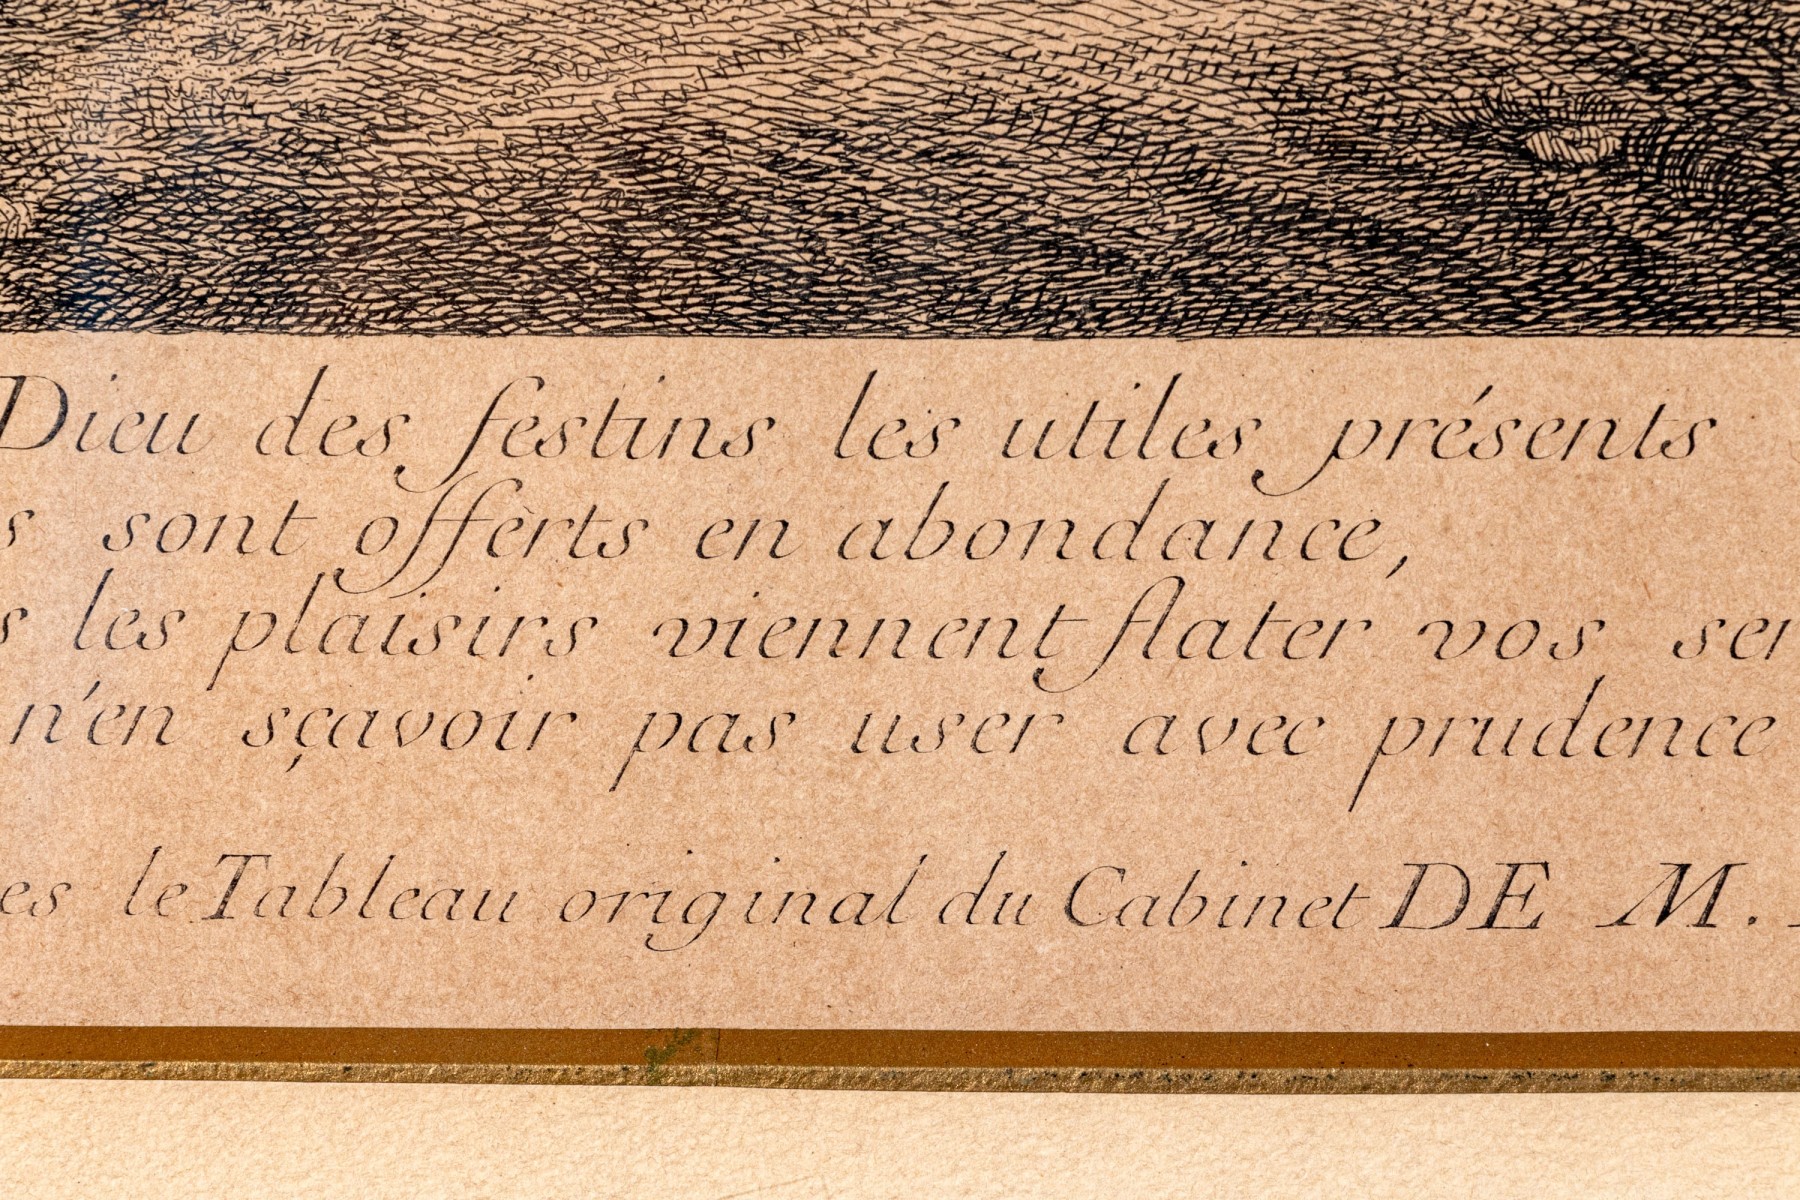 Dieu des festins les utiles présents
s sont offèrts en abondance,
s les plaisirs viennent flater vos
n'en sçavoir pas user avec prudence
es le Tableau original du Cabinet DE M.